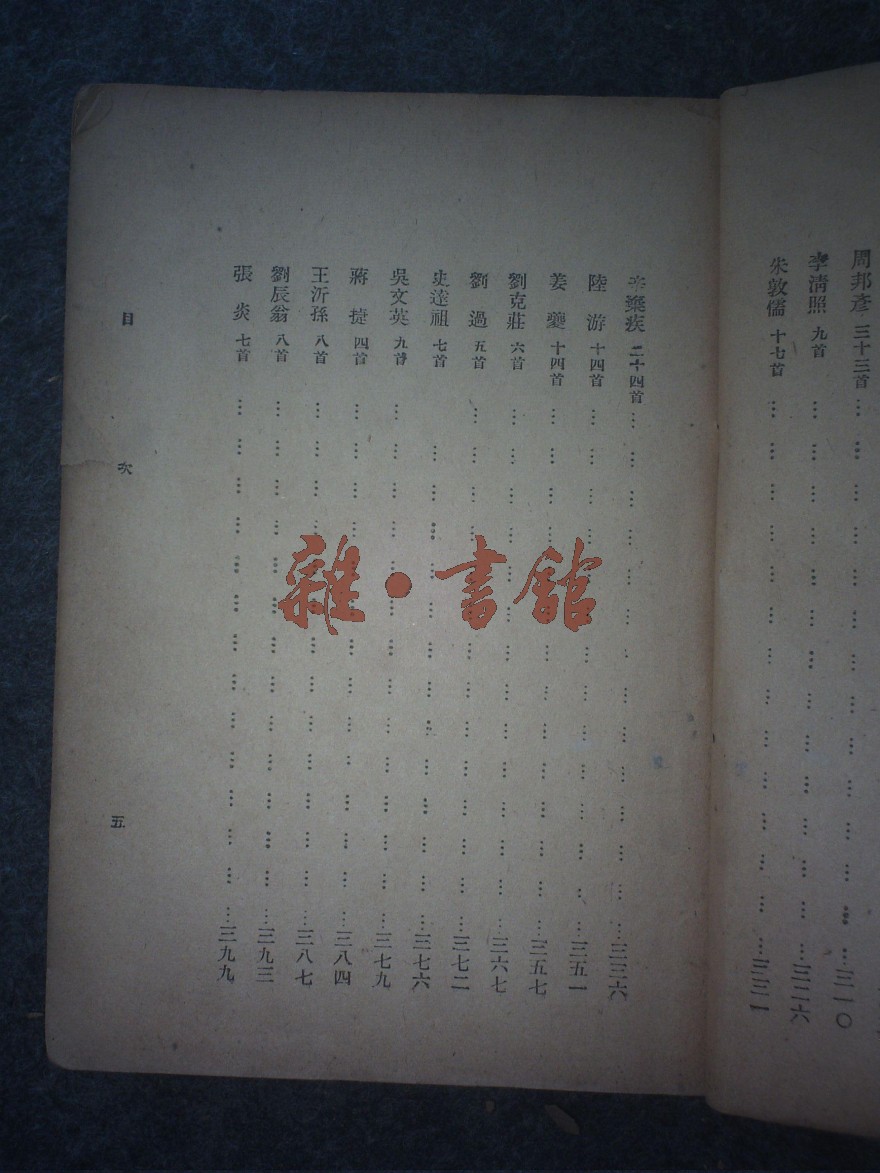 周邦彥 三十三首 … 三一〇
李清照 九首 … 三二六
朱敦儒 十七首 … 三三一
辛棄疾 二十四首 … 三三六
陸　游 十四首 … 三五一
姜　夔 十四首 … 三五七
劉克莊 六首 … 三六七
劉　過 五首 … 三七二
史達祖 七首 … 三七六
吳文英 九首 … 三七九
蔣　捷 四首 … 三八四
王沂孫 八首 … 三八七
劉辰翁 八首 … 三九三
張　炎 七首 … 三九九
目　次　五
雜·書館